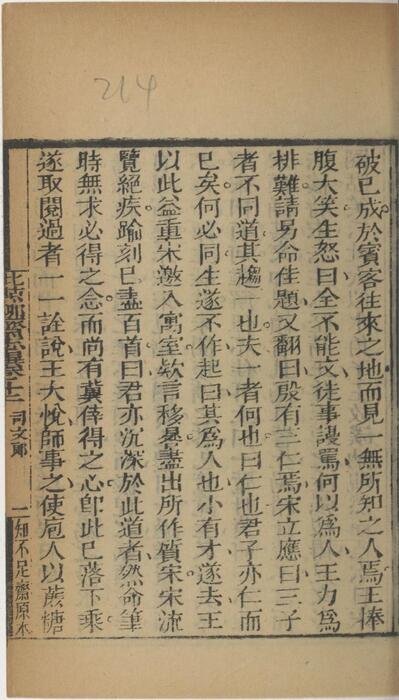 214
破已成於賓客往來之地而見一無所知之人焉王捧
腹大笑生怒曰全不能文徒事謾罵何以為人王力為
排難請另命佳題又翻曰殷有三仁焉宋立應曰三子
者不同道其趨一也夫一者何也曰仁也君子亦仁而
已矣何必同生遂不作起曰其為人也小有才遂去王
以此益重宋邀入寓室欵言移晷盡出所作質宋宋流
覽絕疾踰刻已盡百首曰君亦沉深於此道者然命筆
時無求必得之念而尚有冀倖得之心卽此已落下乘
遂取閱過者一一詮說王大悅師事之使庖人以蔗糖
司文郞
一 知不足齋原本